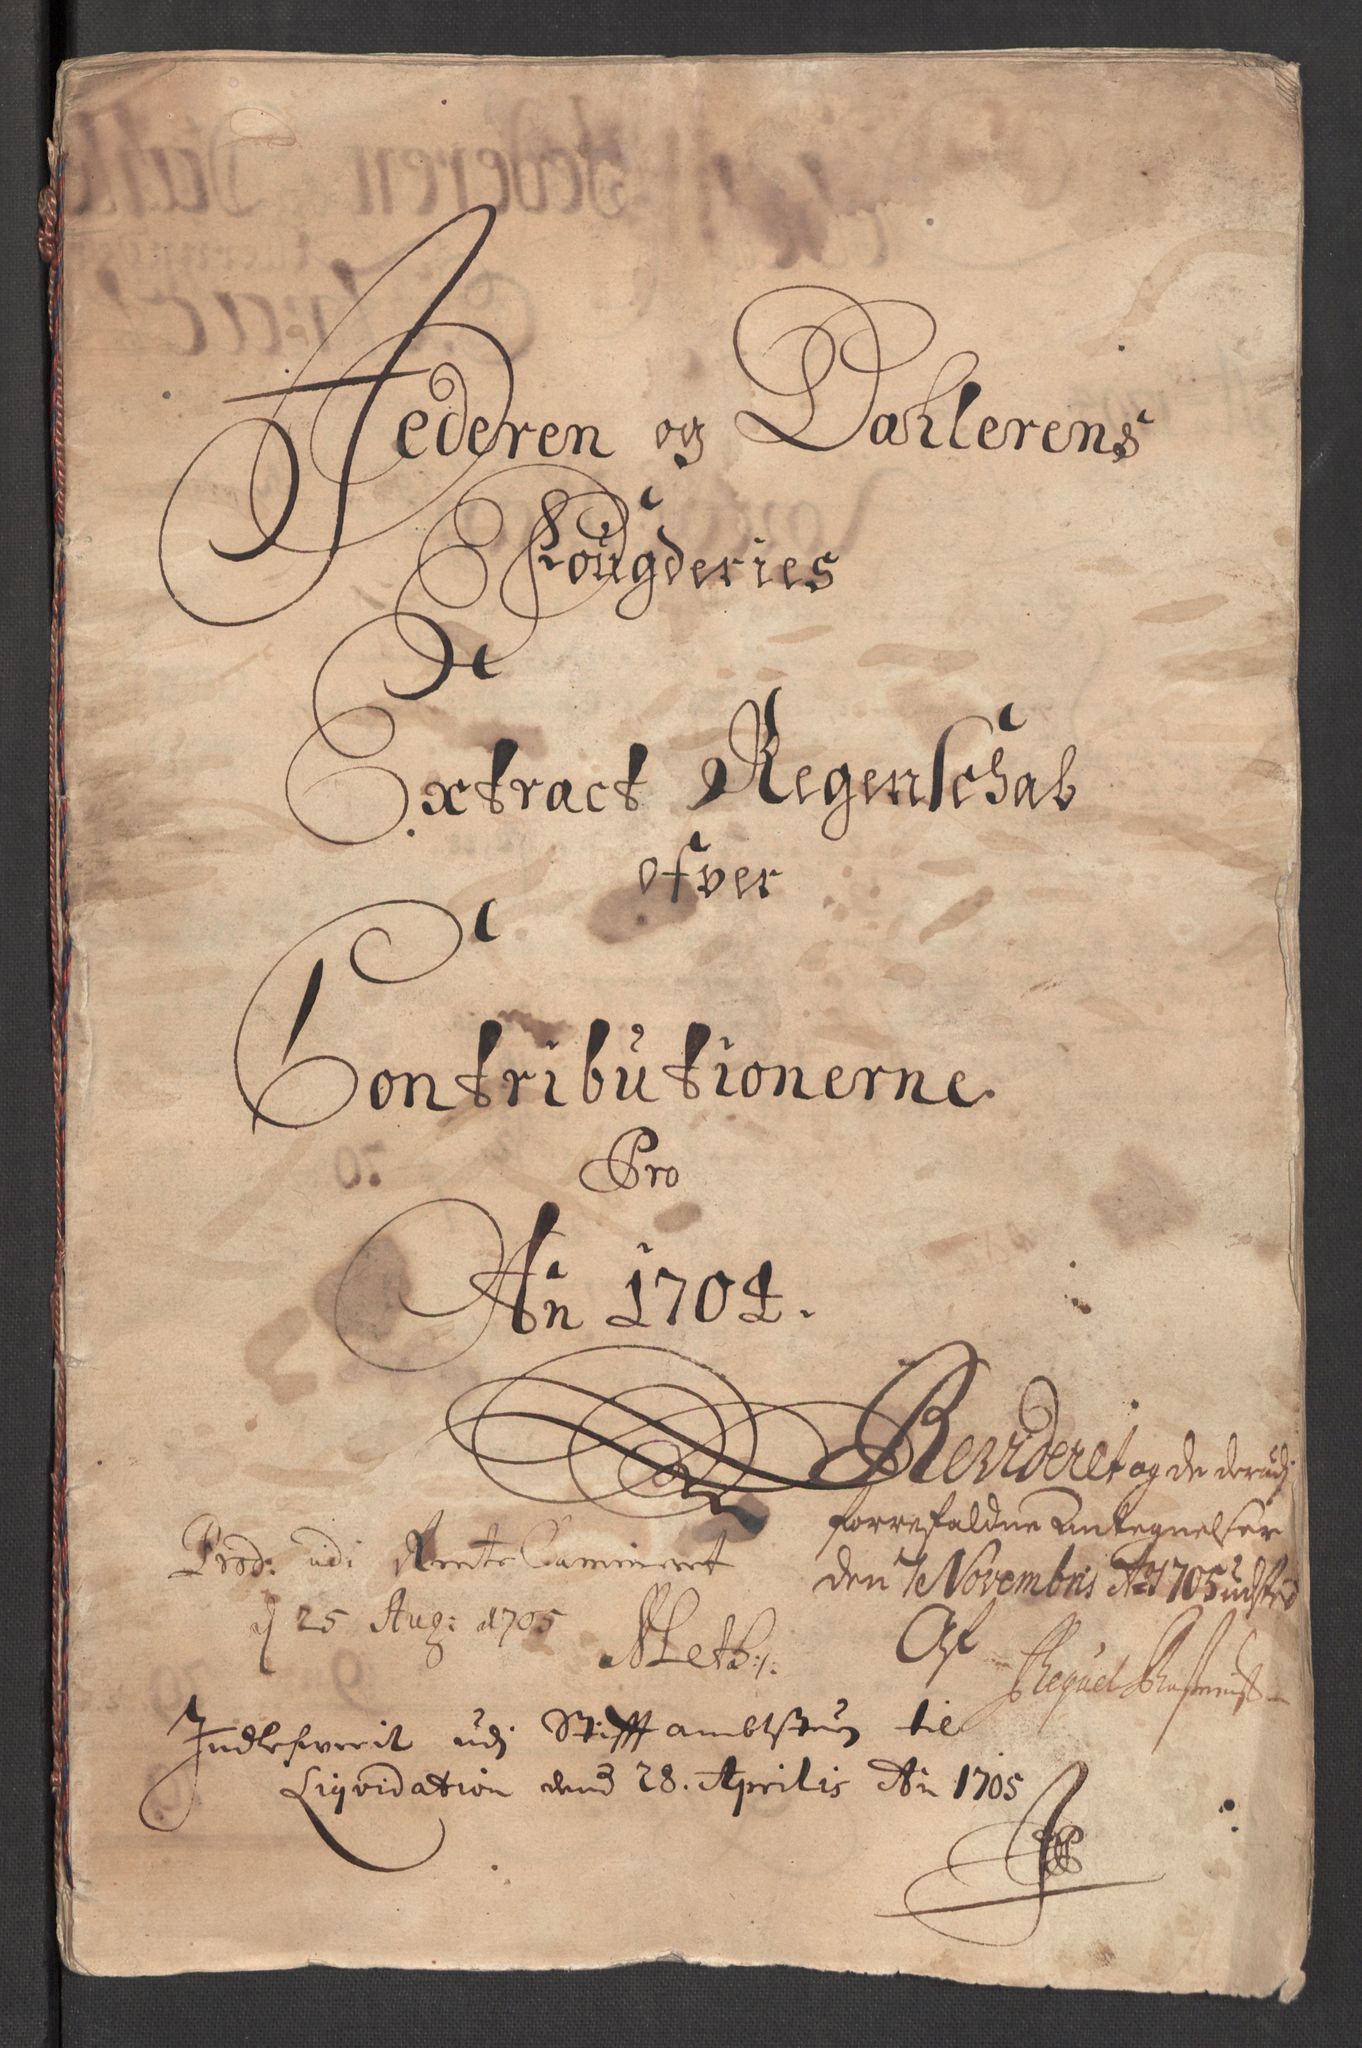 Jederen og Dahlerens
Fougderies
Extract Regenschab
ofver
Contributionerne
Pro
An 1704.
Revideret og de derudi
forrefaldne Antegnelser
den 7 Novembris Ao 1705 udsted
Af
Prod: udi Rente Cammeret
d 25 Aug: 1705
Indlefwerit udj Stifftambtstuen til
Liqvidation dend 28. Aprilis An 1705